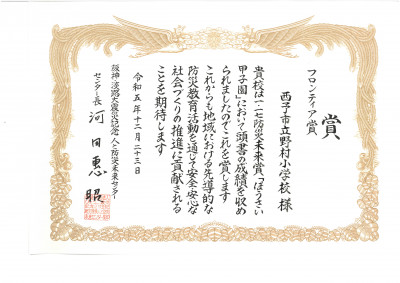 賞
フロンティア賞
西予市立野村小学校 様
貴校は一・一七防災未来賞「ぼうさい
甲子園」において頭書の成績を収め
られましたのでこれを賞します
これからも地域における先導的な
防災教育活動を通じて安全・安心な
社会づくりの推進に貢献される
ことを期待します
令和五年十二月二十三日
阪神・淡路大震災記念 人と防災未来センター
センター長 河田惠昭